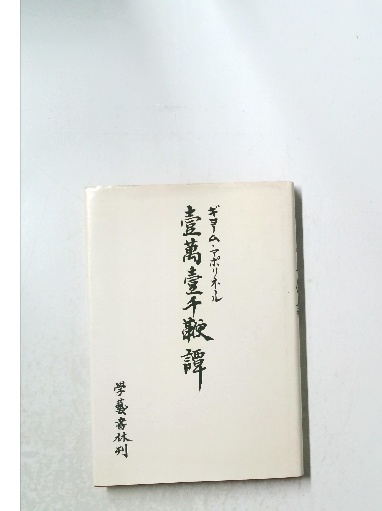 ギヨーム・アポリネール
壹萬壹千鞭譚
學藝書林刋